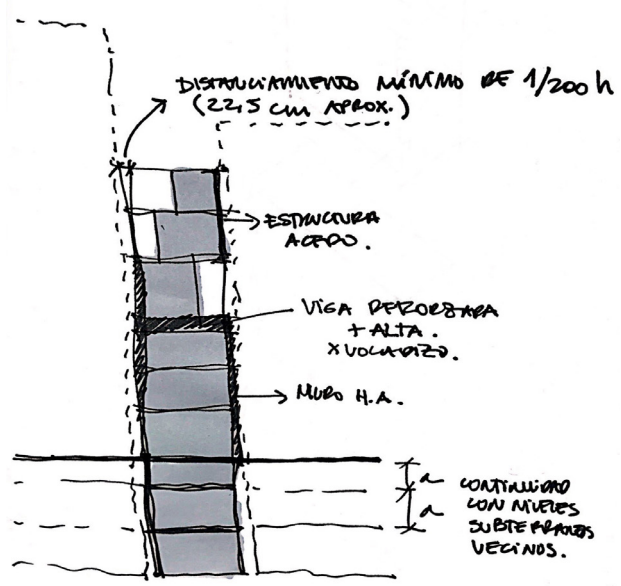 DISTANCIAMIENTO MÍNIMO DE 1/200 h
(22,5 cm APROX.)
ESTRUCTURA
ACERO.
VIGA REFORZADA
+ ALTA.
X VOLADIZO.
MURO H.A.
a CONTINUIDAD
a CON NIVELES
SUBTERRANEOS
VECINOS.